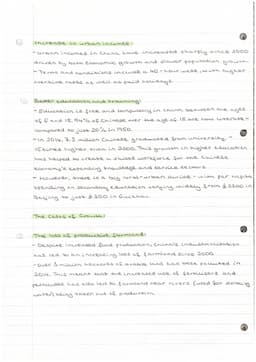 Increase in urban incomes:
- Urban incomes in China have increased sharply since 2000
driven by both economic growth and slower population growth.
- Terms and conditions include a 40-hour week, with higher
overtime rates as well as paid holidays.
Better education and training:
- Education is free and compulsory in China between the ages
of 6 and 15. 94% of Chinese over the age of 15 are now literate -
compared to just 20% in 1950.
- In 2014, 7.2 million Chinese graduated from university -
15 times higher than in 2000. This growth in higher education
has helped to create a skilled workforce for the Chinese
economy's expanding knowledge and service sectors.
- However, there is a big rural-urban divide - with per capita
spending on secondary education varying widely from $ in
Beijing to just $ in Guizhou.
The Costs of Growth:
The loss of productive farmland:
- Despite increased food production, China's industrialisation
has led to an increasing loss of farmland since 2000.
- Over 3 million hectares of arable land had been polluted in
2014. This meant that the increased use of fertilisers and
pesticides has also led to farmland near rivers (used for drinking
water) being taken out of production.